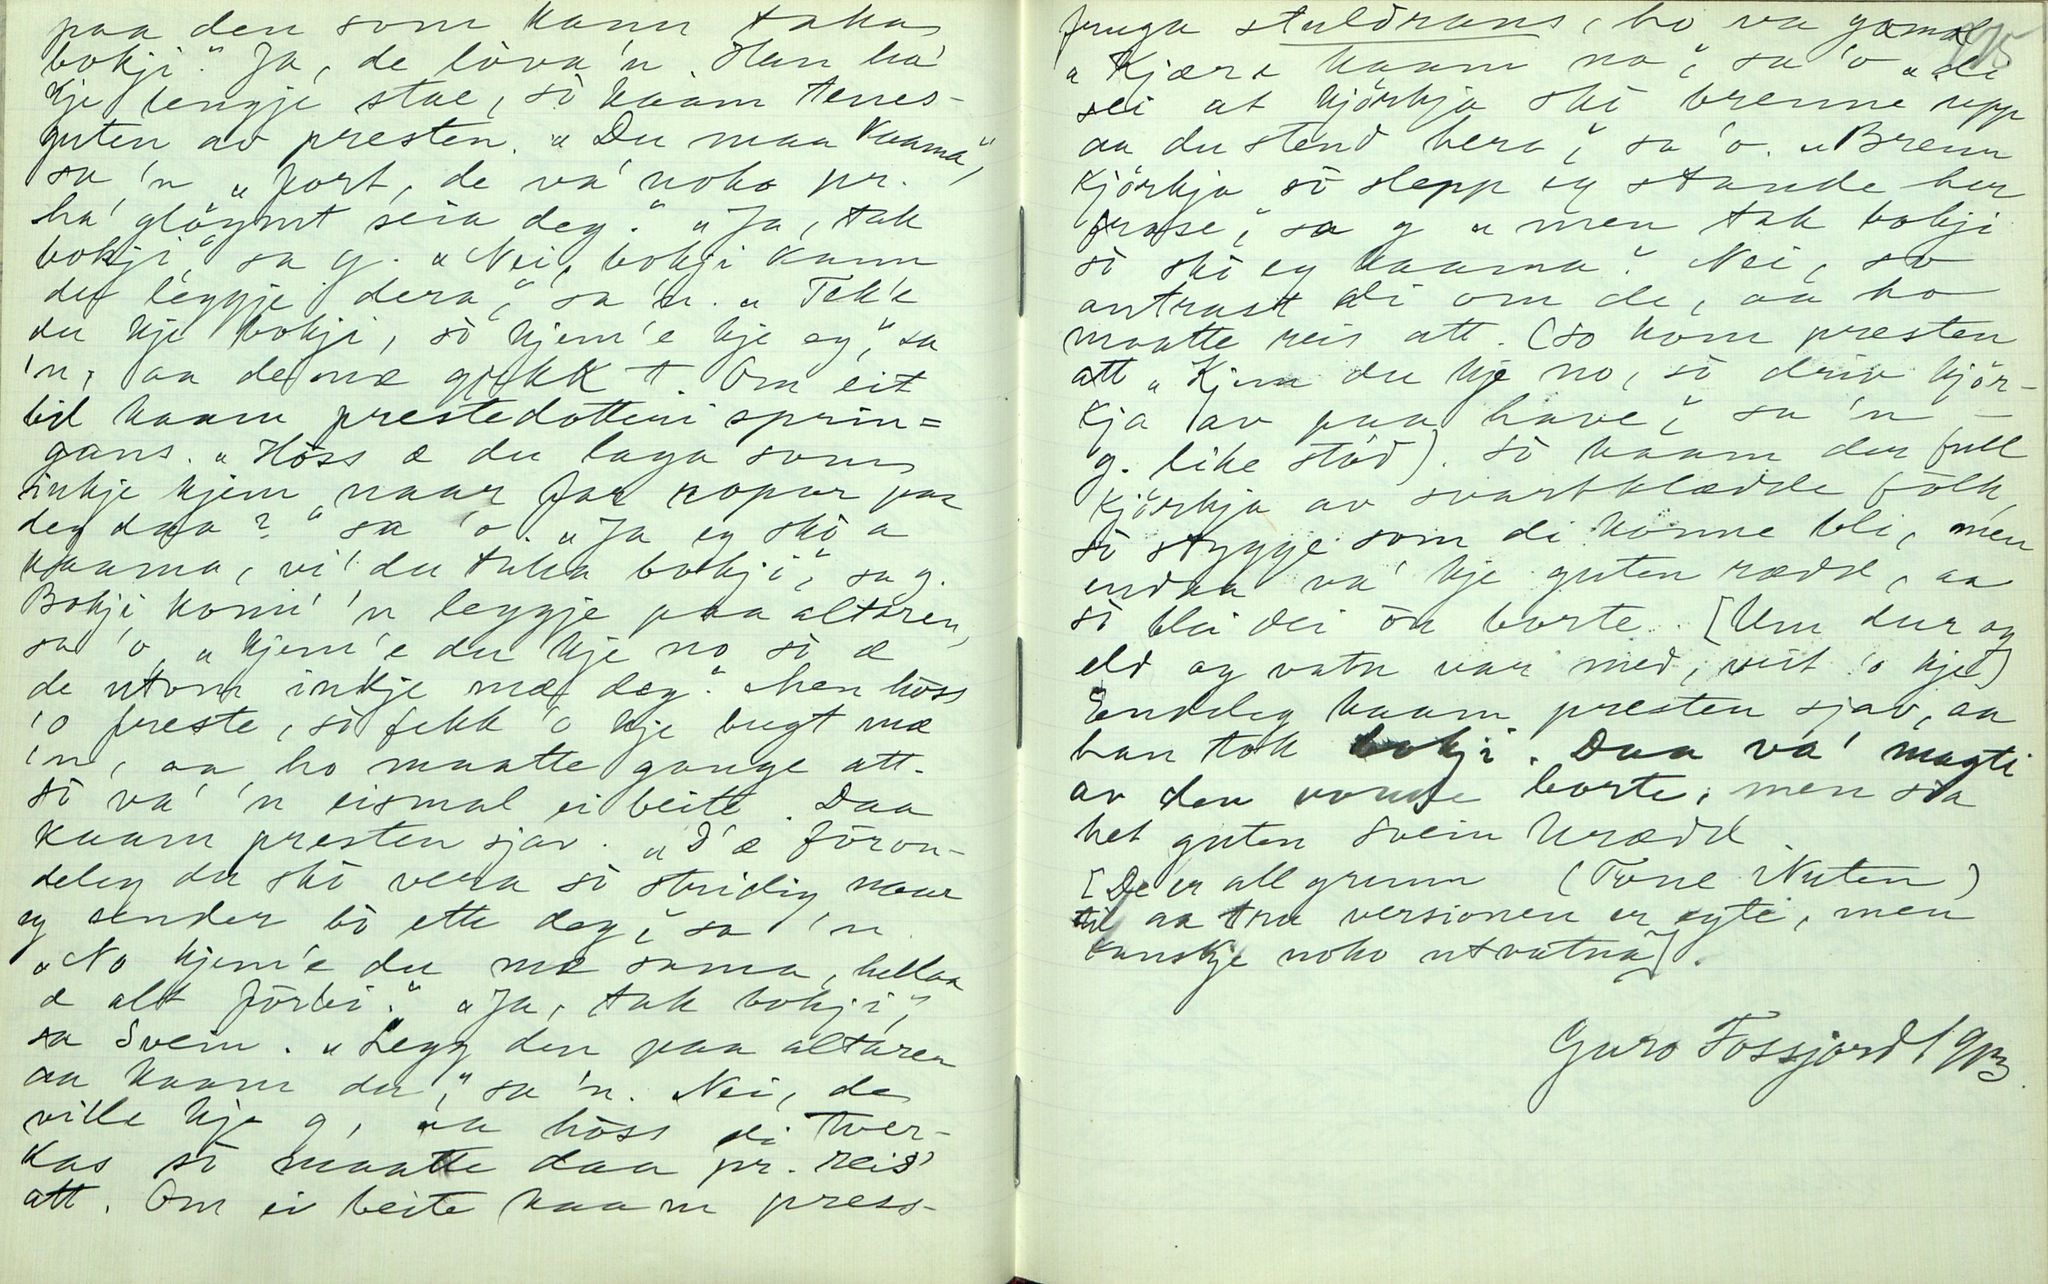 paa den som kann taka
bokji." Ja, de lova 'n. Han ha'
kje lengje stae, sò kaam tenes-
guten av presten. "Du maa kaama,"
sa 'n "fort, de va' noko pr.
ha' glöymt seia deg." "Ja, tak
bokji," sa g. "Nei, bokji kann
du leggje dera," sa 'n. "Tek'e
du kje bokji, sò kjem'e kje eg," sa
'n, aa dermæ gjekk
Om eit
bil kaam prestedotteri sprin=
gans. "Hòss æ du laga som
inkje kjem naar far ropar paa
deg daa?" sa 'o. "Ja eg skò a
kaama, vi' du taka bokji," sa g.
Bokji konn' 'n leggje paa altaren,
sa 'o, "kjem'e du kje no sò æ
de utom inkje mæ deg." Men hòss
'o freste, sò fekk 'o kje bugt mæ
'n, aa ho maatte gange att.
Sò va' 'n eismal ei beite. Daa
kaam presten sjav. "D'æ föron-
deleg du skò vera sò stridig naar
eg sender bò ette deg," sa 'n.
"No kjem'e du mæ sama, hellaa
æ alt förbi." "Ja, tak bokji,"
sa Svein. "Legg den paa altaren
aa kaam du," sa 'n. Nei, de
ville kje g, aa hòss di tver-
kas sò maatte daa pr. reis'
att. Om ei beite kaam press-
fruga stuldrans, ho va gomal
"Kjære kaam no," sa 'o "di
sei at kjörkja skò brenne upp
aa du stend hera," sa 'o. "Brenn
kjörkja sò slepp eg stande her
frose," sa g "men tak bokji
sò skò eg kaama." Nei, so
antrast di om de, aa ho
maatte reis att. (So kom presten
att "Kjem du kje no, sò driv kjör-
kja av paa have," sa 'n -
g. like stöd). Sò kaam der full
kjörkja av svartklædde fölk,
sò stygge som di konne bli, men
endaa va' kje guten rædd, aa
sò blei dei òu borte. [Um dur og
eld og vatn var med, veit 'o kje]
Endeleg kaam presten sjav, aa
han tok bokji. Daa va' magti
av den vonde borte, men sia
het guten Svein Urædd.
[De er all grunn (Tone Nuten)
til aa tru versionen er egte, men
kanskje noko utvatna].
Guro Fossjord 1913.